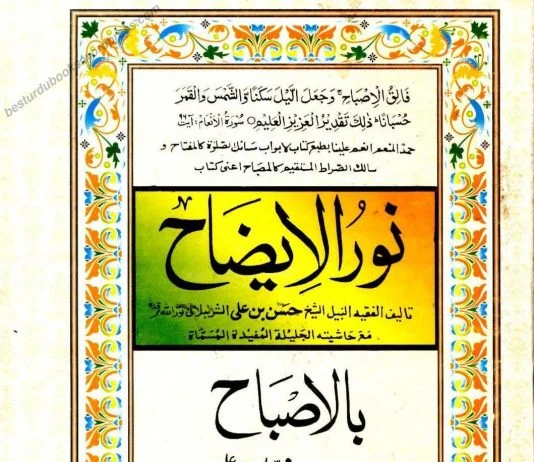 besturdubooks.wordpress.com
فَالِقُ الْاِصْبَاحِ ۚ وَجَعَلَ الَّيْلَ سَكَنًا وَّ الشَّمْسَ وَالْقَمَرَ
حُسْبَانًا ؕ ذٰلِكَ تَقْدِيْرُ الْعَزِيْزِ الْعَلِيْمِ ○ سُوْرَةُ الْاَنْعَام: آيت
حمدًا لمنعم انعم علينا بطبع كتاب لابواب مسائل الصلوة كالمفتاح و
سالك الصراط المستقيم كالمصباح اعنى كتاب
نُورُ الْاِيضَاح
تاليف الفقيه النبيل الشيخ حسن بن على الشرنبلالى نور الله
مَعَ حَاشيته الجَليلة المُفيدة المُسَمَّاة
بالْاِصْبَاح